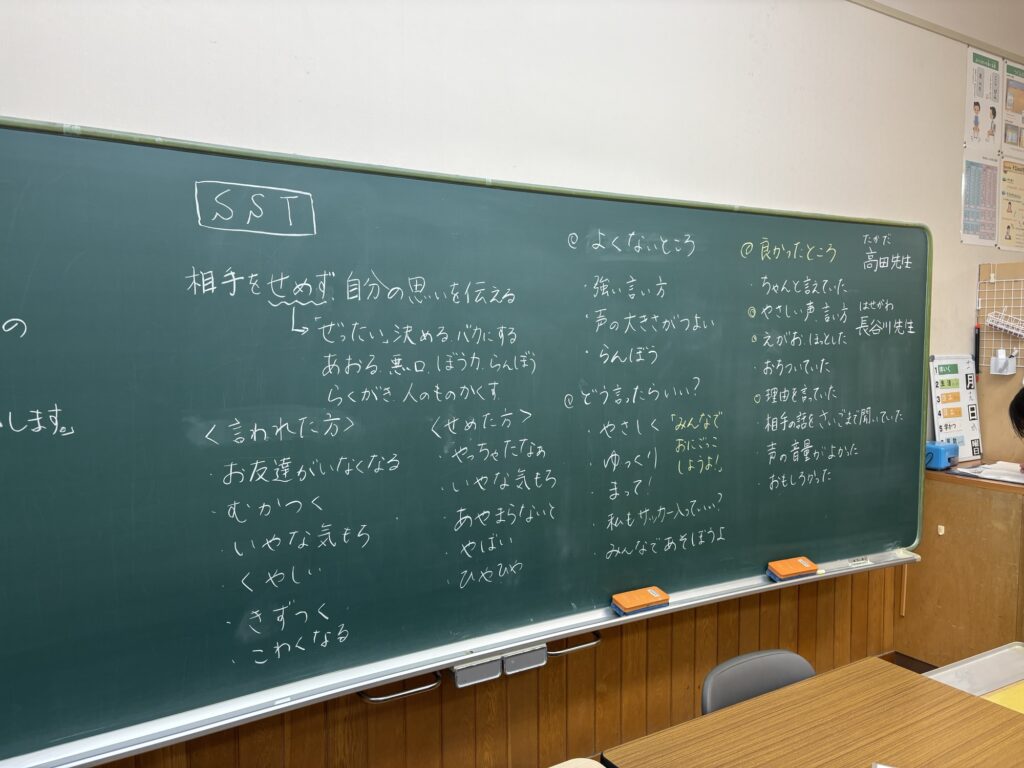 の
します。
SST
相手をせめず、自分の思いを伝える
ぜったい、決める、バカにする
あおる、悪口、ぼう力、らんぼう
らくがき 人のものかくす
<言われた方>
お友達がいなくなる
・むかつく
・いやな気もち
・くやしい
・きずつく
・こわくなる
<せめた方>
・やっちゃたなぁ
・いやな気もち
・あやまらないと
・やばい
・ひやひや
@ よくないところ
・強い言い方
・声の大きさがつよい
・らんぼう
@ どう言ったらいい?
・やさしく
・ゆっくり
・まって!
・私もサッカー入っていい?
・みんなであそぼうよ
「みんなで
おにごっこ
しようよ!」
@ 良かったところ
・ちゃんと言えていた
◎やさしい声 言い方
えがお、ほっとした
・おちついていた
○理由を言っていた
相手の話をさいごまで聞いていた
・声の音量がよかった
・おもしろかった
たかだ
高田先生
はせがわ
長谷川先生
月
日